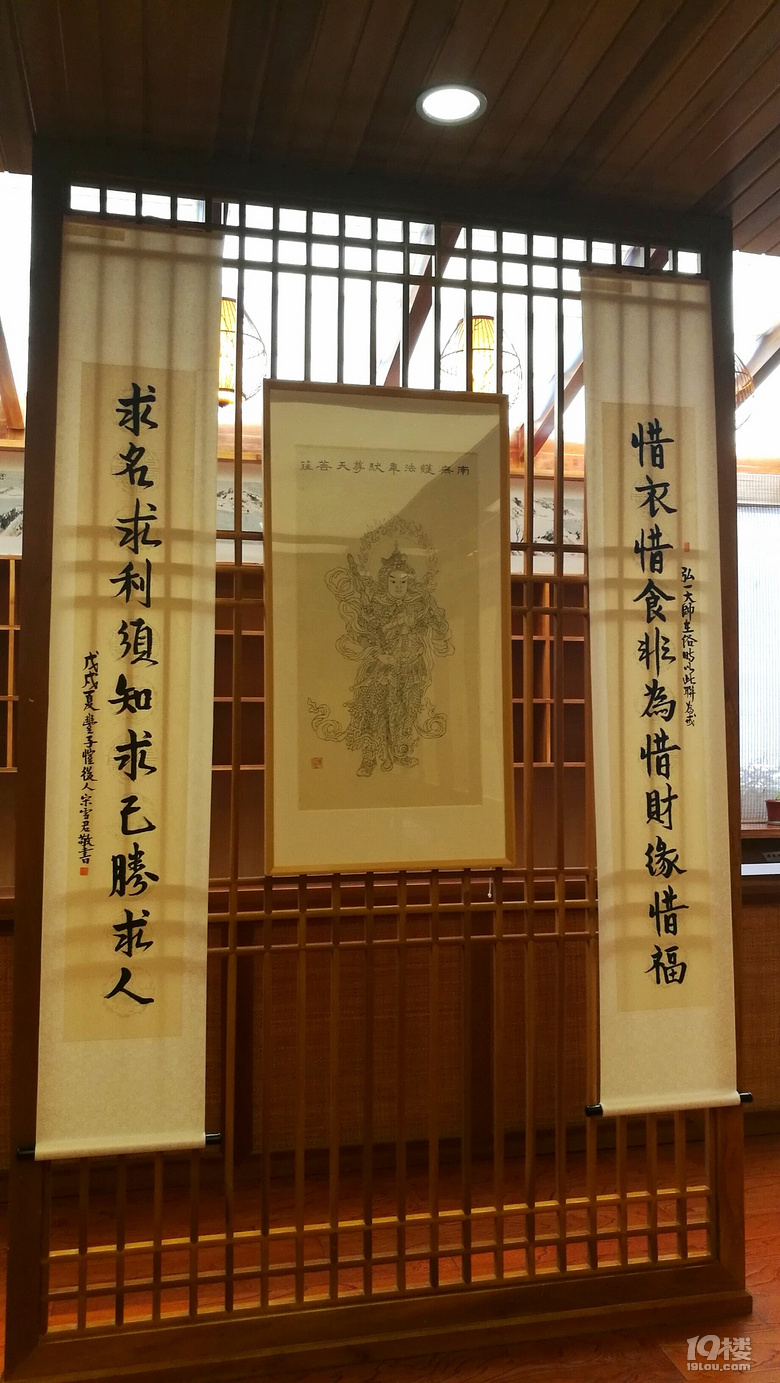 惜衣惜食非為惜財緣惜福
弘一大師在俗時以此聯為戒
南無護法韋馱尊天菩薩
求名求利須知求己勝求人
戊戌夏豐子愷後人宋雪君敬書
19楼
19lou.com